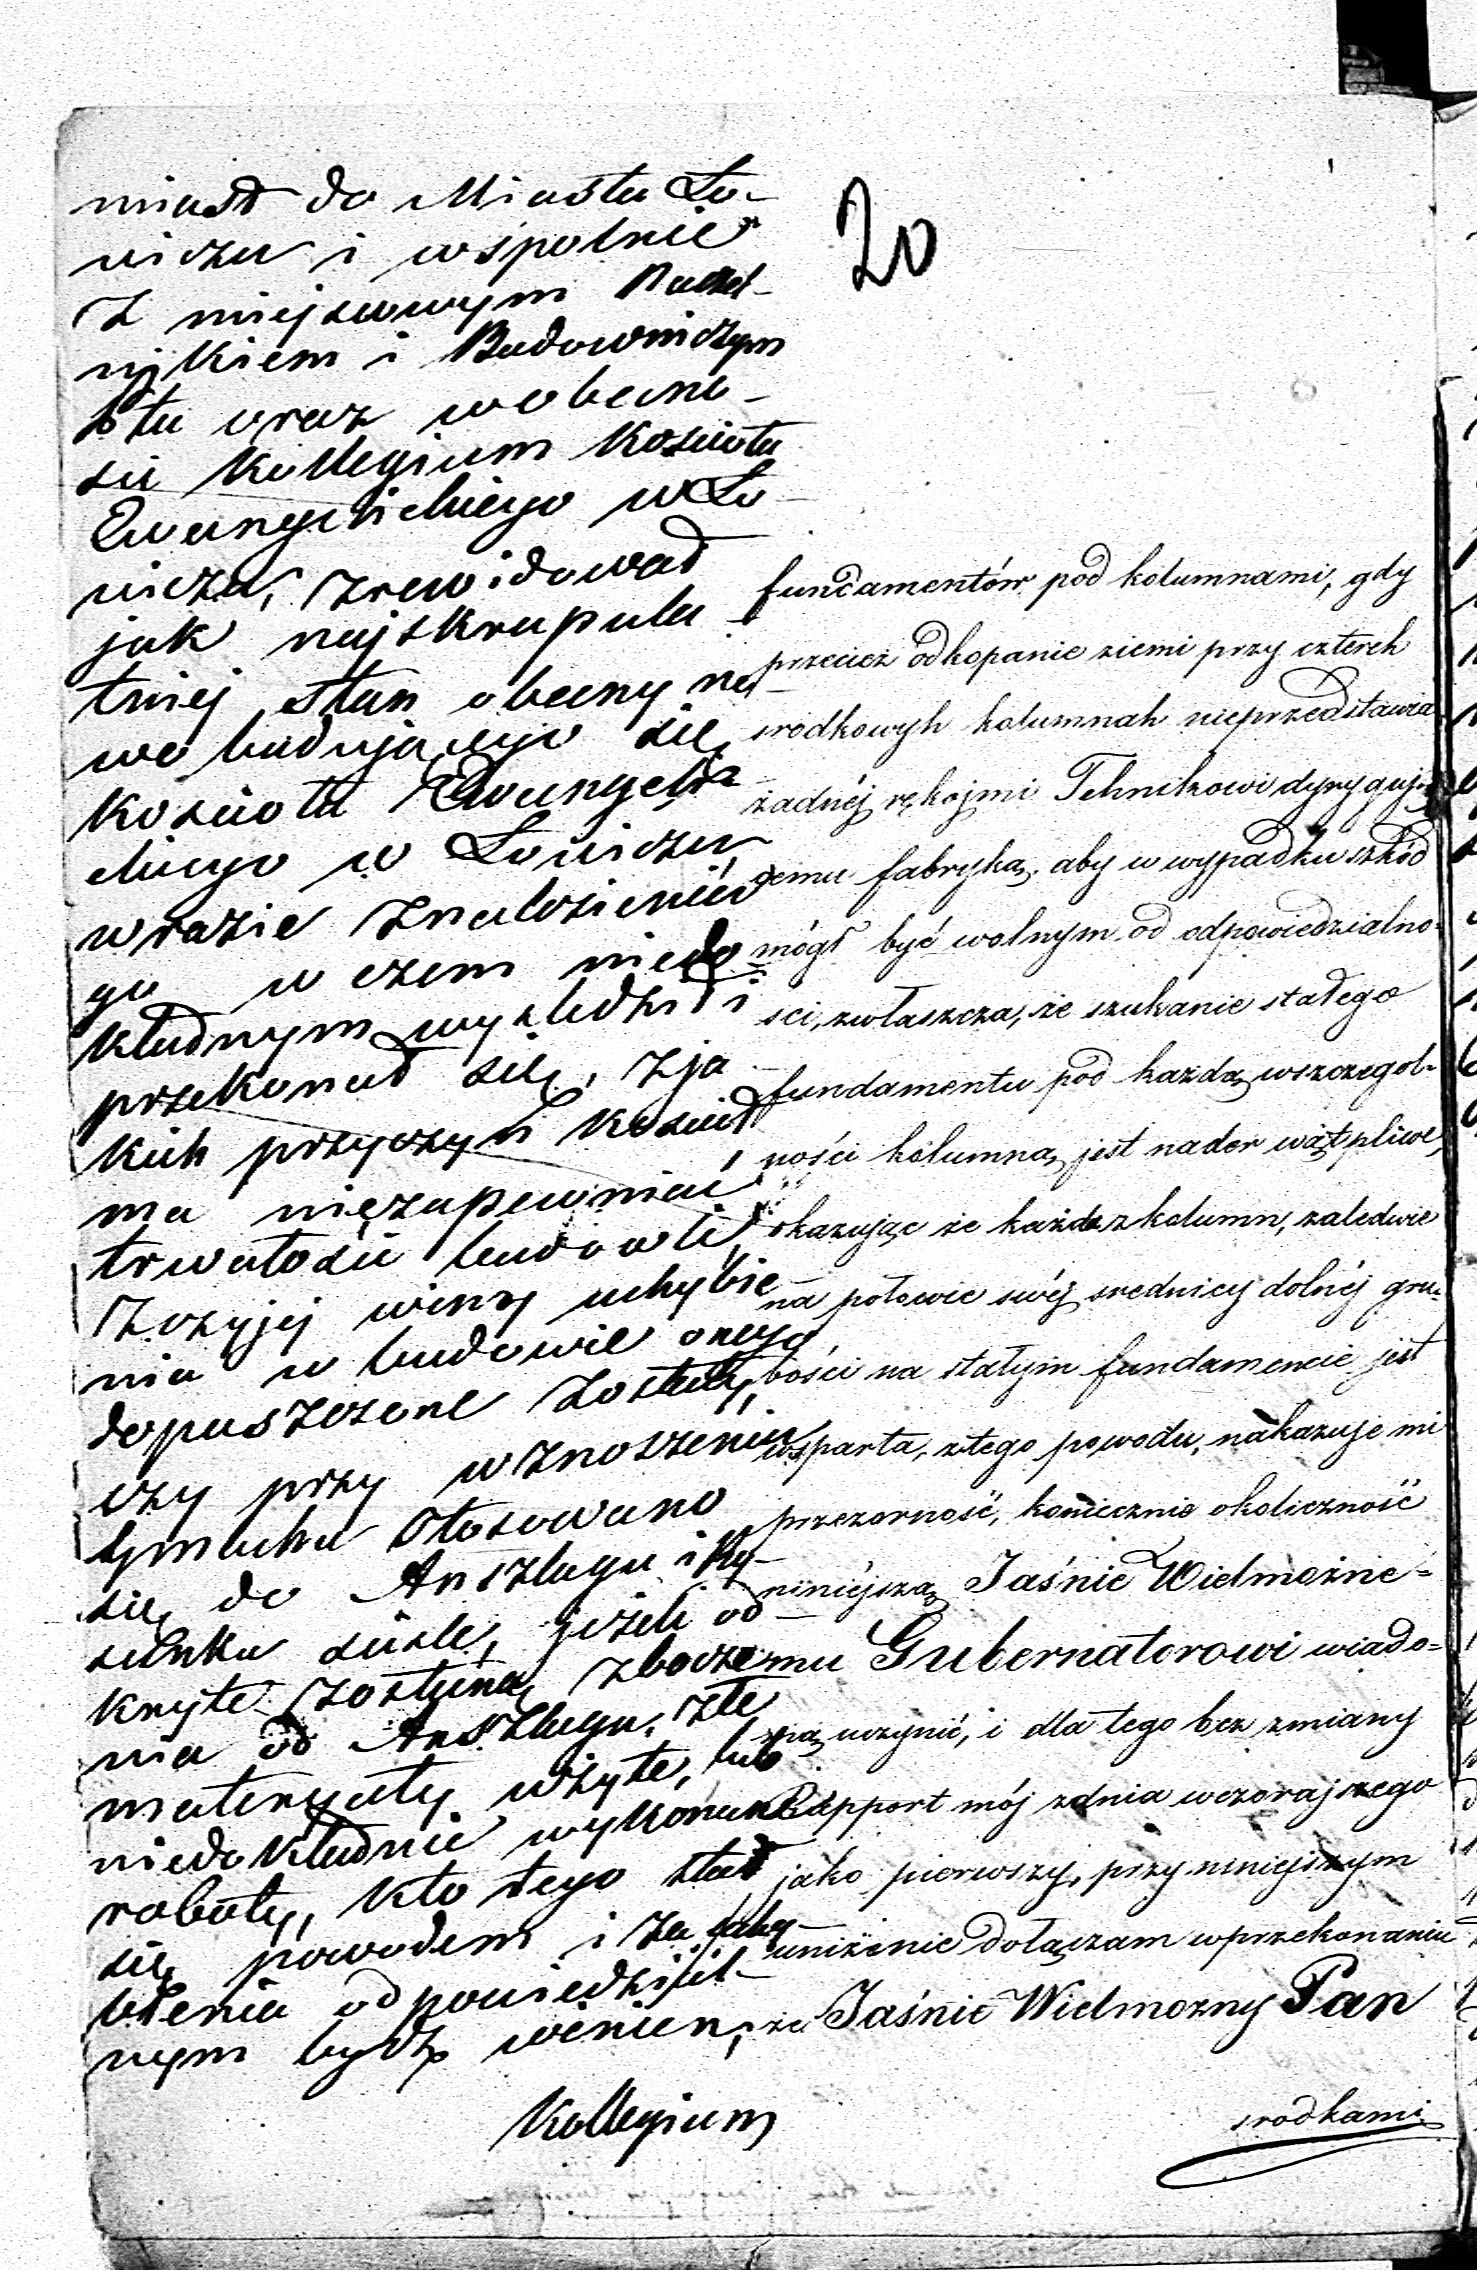 miast do Miasta Ło-
wicza i wspolnie
Z miejscowym Naczel-
nikiem i Budowniczym
Ptu oraz w obecno-
sci Kollegium Kosciola
Ewangelickiego w Ło
wiczu, zrewidowad
jak najskrupula
tniej stan obecny no
wo budującego się
Kosciola Ewangeli-
ckiego w Łowiczu
w razie Znalezienia
go w czem niedo
kładnym wysledzid i
przekonad się, z ja
kich przyczyn Kosciół
ma niezapewniać
trwałości budowli,
Z czyjej winy uchybie
nia w budowie onego
dopuszczone zostały,
czy przy wznoszeniu
Gmachu stosowano
się do Anszlagu i Ry-
sunku scisle, jeżeli od
kryte zostaną zbocze
nia od Anszlagu, złe
materyały użyte, lub
niedokładnie wykonane
roboty, kto tego stał
się powodem i za
odpowiedzial-
nym bydź winien,
Kollegium
20
fundamentów pod kolumnami, gdy
przecież odkopanie ziemi przy czterch
srodkowyh kolumnah nieprzedstawia
żadnéj rękojmi Tehnikowi dyrygują
cemu fabryką, aby w wypadku szkód
mógł być wolnym od odpowiedzialno-
sci, zwłaszcza, że szukanie stałego
fundamentu pod każdą wszczegol-
ności kolumną jest nader wątpliwe,
okazując że każda z kolumn, zaledwie
na połowie swéj srednicy dolnéj gru-
bości na stałym fundamencie jest
wsparta, z tego powodu, nakazuje mi
przezorność, koniecznie okoliczność
niniéjszą Jaśnie Wielmożne=
mu Gubernatorowi wiado=
mą uczynić, i dla tego bez zmiany
Rapport mój zdnia wczorajszego
jako pierwszy, przy niniejszym
uniżenie dołączam wprzekonaniu
że Jaśnie Wielmozny Pan
srodkami